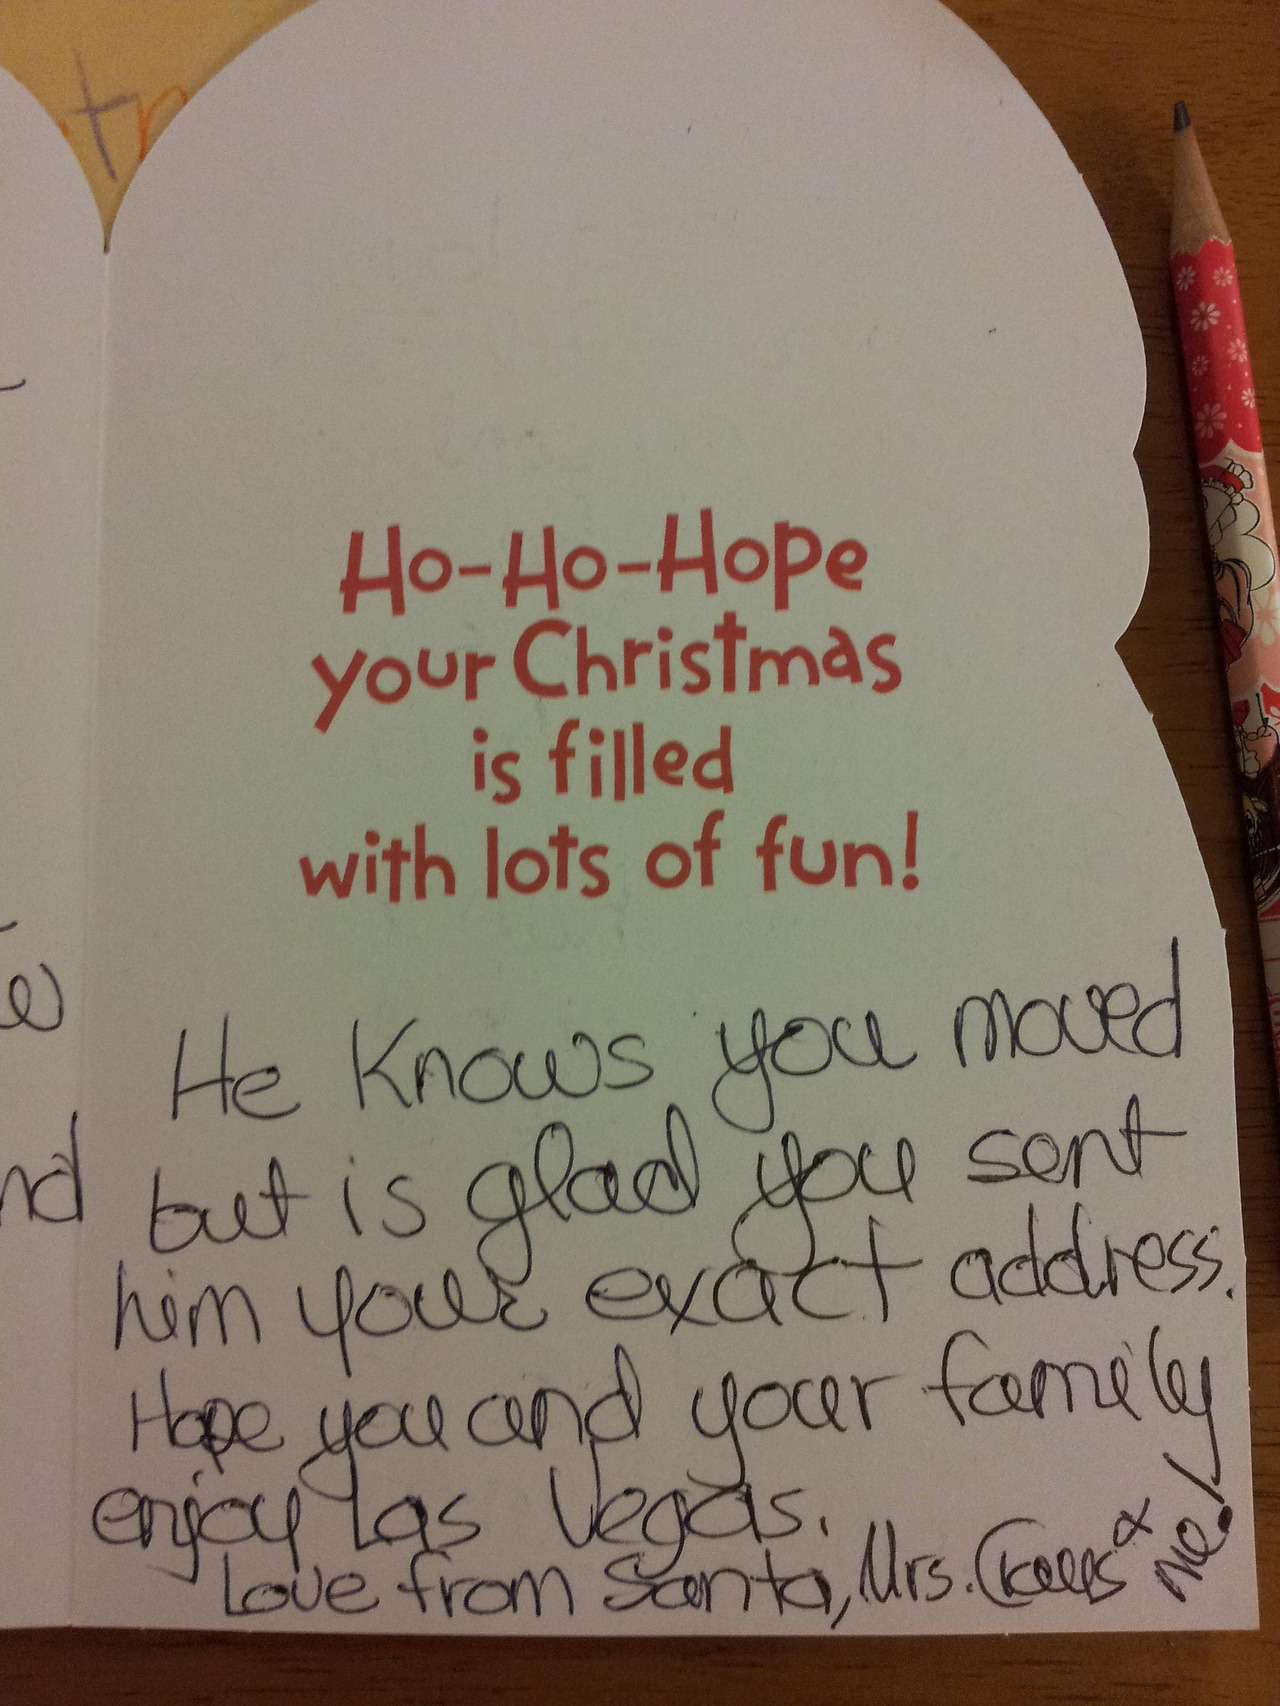 tn
Ho-Ho-Hope
your Christmas
is filled
with lots of fun!
w
nd
He Knows you moved
but is glad you sent
him your exact address.
Hope you and your family
enjoy Las Vegas.
Love from Santa, Mrs. Claus &
me!